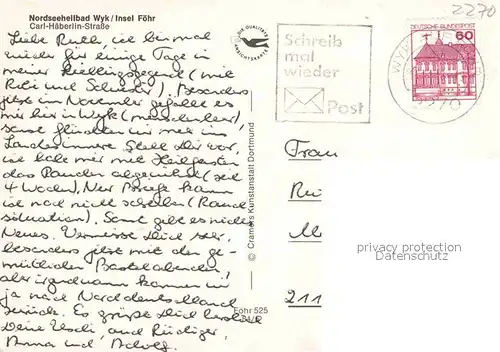 2270
Nordseeheilbad Wyk / Insel Föhr
Carl-Häberlin-Straße
DIE QUALITÄTS
ANSICHTSKARTE
Liebe Ruth, ich bin mal
wieder für einige Tage in
meiner Lieblingsgegend (mit
und Schwester). Besonders
jetzt im November gefällt es
mir hier in Wyk (menschenleer),
sonst flüchten wir mehr ins
Landesinnere. Stell Dir vor,
ich habe mir mit Heilfasten
das Rauchen abgewöhnt (seit
4 Wochen). Nur Briefe kann
ich noch nicht schreiben (Rauch-
situation). Sonst gibt es nichts
Neues. Vermisse Dich sehr,
besonders jetzt mit den ge-
mütlichen Bastelabenden,
aber irgendwann kommen wir
ja nach Norddeutschland
zurück. Es grüßt Dich herzlich
Deine Uschi und Rüdiger,
Anna und
© Cramers Kunstanstalt Dortmund
Föhr 525
Schreib
mal
wieder
Post
DEUTSCHE BUNDESPOST
60
WYK
2270
Frau
Ru
M
211
privacy protection
Datenschutz